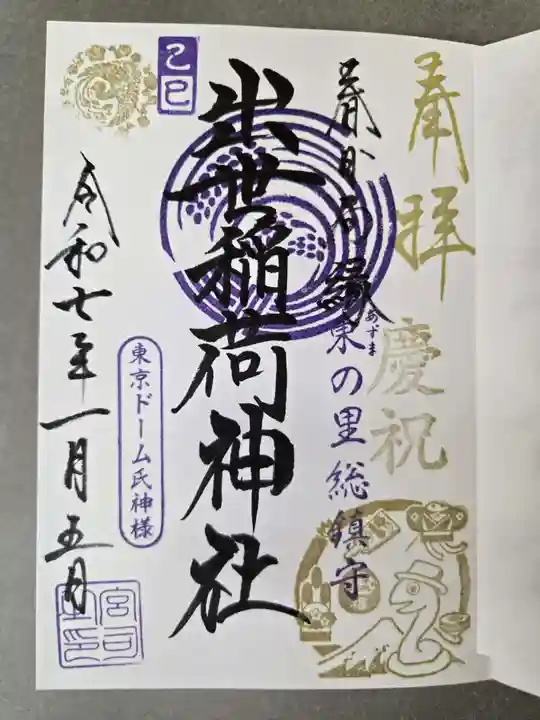 奉拝
慶祝
春日局縁
東の里総鎮守
あずま
出世稲荷神社
己巳
東京ドーム氏神様
令和七年一月五日
宮司之印